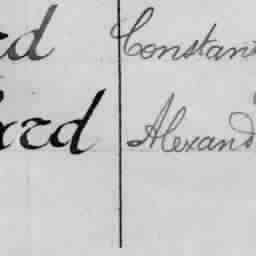 rd Constan
xrd Alexand